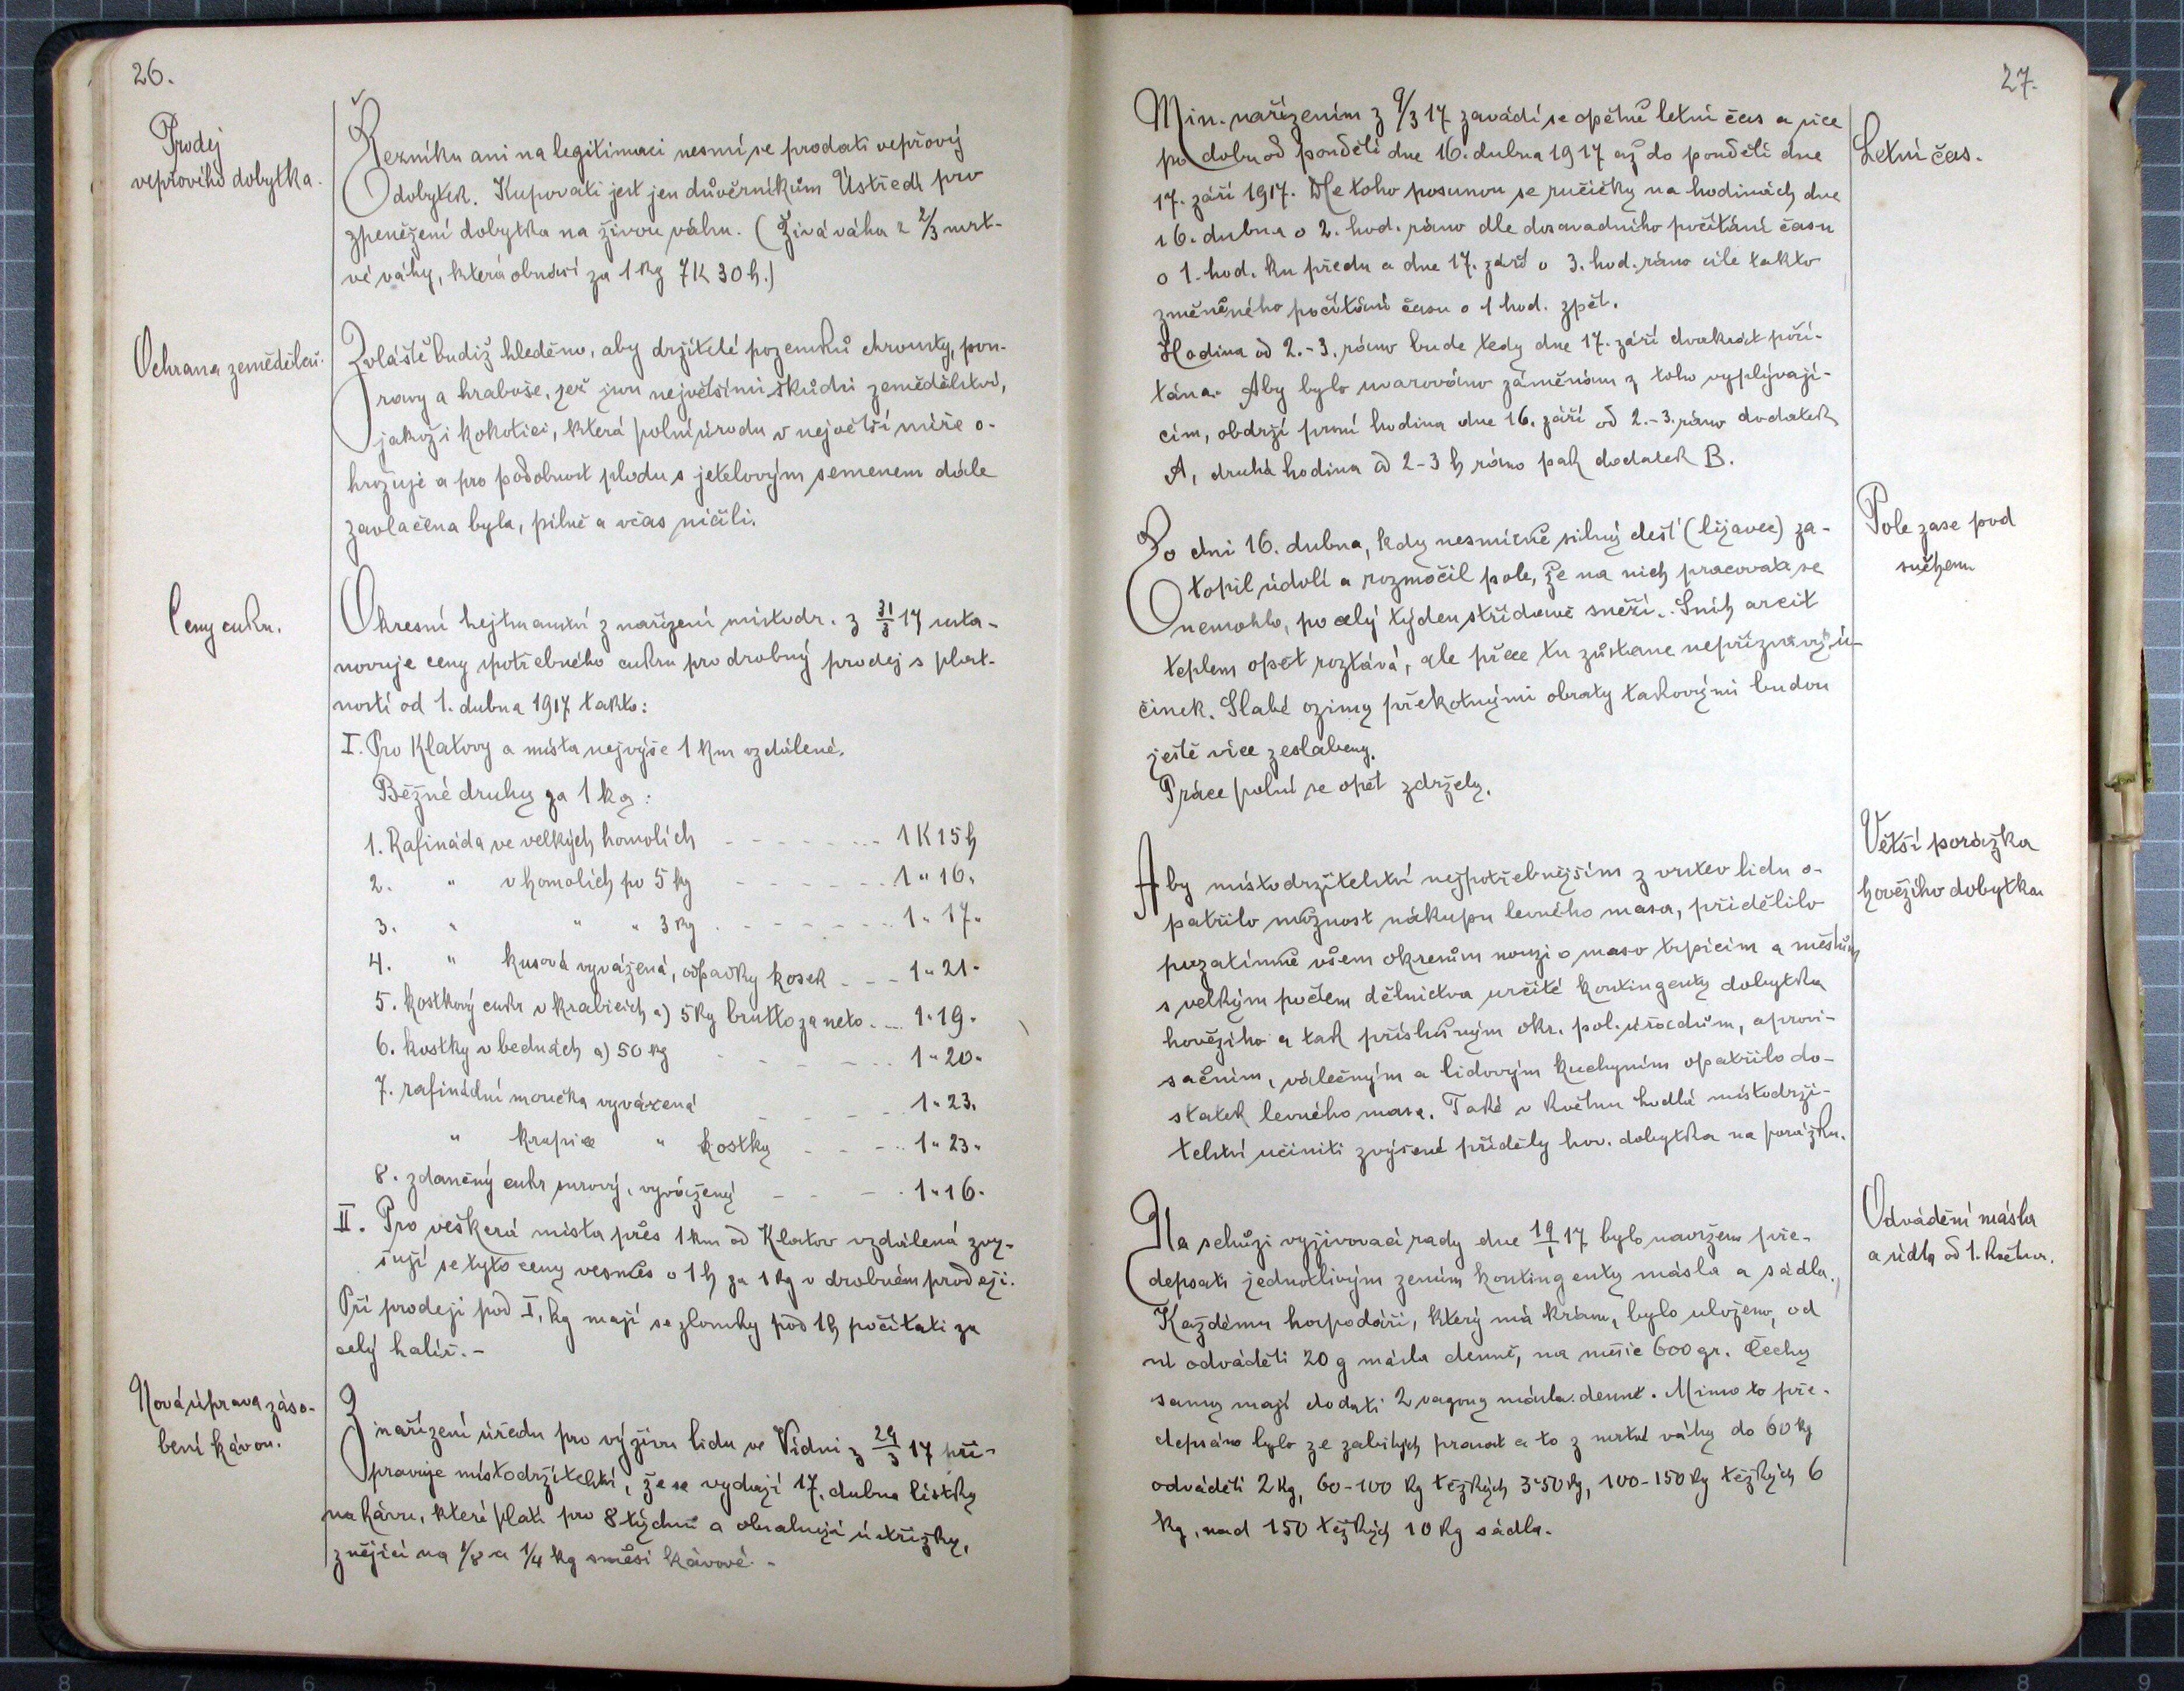 26.
Prodej
vepřového dobytka.
Řezníku ani na legitimaci nesmí se prodati vepřový
dobytek. Kupovati jest jen důvěrníkům Ústředí pro
zpeněžení dobytka na živou váhu. (Živá váha = 2/3 mrt-
vé váhy, která obnáší za 1 kg 7 K 30 h.)
Ochrana zemědělců.
Zvláště budiž hleděno, aby držitelé pozemků chrousty, pon-
ravy a hraboše, jež jsou největšími škůdci zemědělství,
jakož i kokotici, která polní úrodu v největší míře o-
hrožuje a pro podobnost plodu s jetelovým semenem dále
zavlačena byla, pilně a včas ničili.
Ceny cukru.
Okresní hejtmanství z nařízení místodr. z 31/3 17 usta-
novuje ceny spotřebného cukru pro drobný prodej s plat-
ností od 1. dubna 1917 takto:
I. Pro Klatovy a místa nejvýše 1 km vzdálené.
Běžné druhy za 1 kg:
1. Rafináda ve velkých homolích - - - - - - - 1 K 15 h
2. " v homolích po 5 kg - - - - - - 1 " 16 "
3. " " " 3 kg - - - - - - 1 " 17 "
4. " kusová vyvážená, odpadky kostek - - - 1 " 21 "
5. kostkový cukr v krabicích a) 5 kg brutto za neto - - 1 " 19 "
6. kostky v bednách a) 50 kg - - - - - 1 " 20 "
7. rafinádní moučka vyvážená - - - - - 1 " 23 "
" krupice " kostky - - - - 1 " 23 "
8. zdaněný cukr surový, vyvážený - - - - 1 " 16 "
II. Pro veškerá místa přes 1 km od Klatov vzdálená zvy-
šují se tyto ceny vesměs o 1 h za 1 kg v drobném prodeji.
Při prodeji pod I. kg mají se zlomky pod 1 h počítati za
celý haléř. -
Nová úprava záso-
bení kávou.
Z
nařízení úřadu pro výživu lidu ve Vídni z 29/3 17 při-
pravuje místodržitelství, že se vydají 17. dubna lístky
na kávu, které platí pro 8 týdnů a obsahují ústřižky,
znějící na 1/8 a 1/4 kg směsi kávové. -
27.
Min. nařízením z 9/3 17 zavádí se opětně letní čas a sice
po dobu od pondělí dne 16. dubna 1917 až do pondělí dne
17. září 1917. Dle toho posunou se ručičky na hodinách dne
16. dubna o 2. hod. ráno dle dosavadního počítání času
o 1. hod. ku předu a dne 17. září o 3. hod. ráno cíle takto
změněného počítání času o 1 hod. zpět.
Hodina od 2.-3. ráno bude tedy dne 17. září dvakrát počí-
tána. Aby bylo uvarováno záměnám z toho vyplývají-
cím, obdrží první hodina dne 16. září od 2.-3. ráno dodatek
A, druhá hodina od 2-3 h ráno pak dodatek B.
Letní čas.
Pole zase pod
sněhem
Zo dni 16. dubna, kdy nesmírně silný dešť (lijavec) za-
topil údolí a rozmočil pole, že na nich pracovati se
nemohlo, po celý týden střídavě sněží. Sníh arciť
teplem opět roztává, ale přece tu zůstane nepříznivý ú-
činek. Slabé ozimy překotnými obraty takovými budou
ještě více zeslabeny.
Práce polní se opět zdržely.
Větší porážka
hovězího dobytka
Aby místodržitelství nejpotřebnějším z vrstev lidu o-
patřilo možnost nákupu levného masa, přidělilo
prozatímně všem okresům nouzi o maso trpícím a městům
s velkým počtem dělnictva určité kontingenty dobytka
hovězího a tak příslušným okr. pol. úřadům, aprovi-
sačním, válečným a lidovým kuchyním opatřilo do-
statek levného masa. Také v květnu hodlá místodrži-
telství učiniti zvýšené příděly hov. dobytka na porážku.
Odvádění másla
a sádla od 1. května.
Na schůzi vyživovací rady dne 19/1 17 bylo navrženo pře-
depsati jednotlivým zemím kontingenty másla a sádla.
Každému hospodáři, který má krávu, bylo uloženo, od
ní odváděti 20 g másla denně, na měsíc 600 gr. Čechy
samy mají dodati 2 vagony másla denně. Mimo to pře-
depsáno bylo ze zabitých prasat a to z mrtvé váhy do 60 kg
odváděti 2 kg, 60-100 kg těžkých 3·50 kg, 100-150 kg těžkých 6
kg, nad 150 těžkých 10 kg sádla.